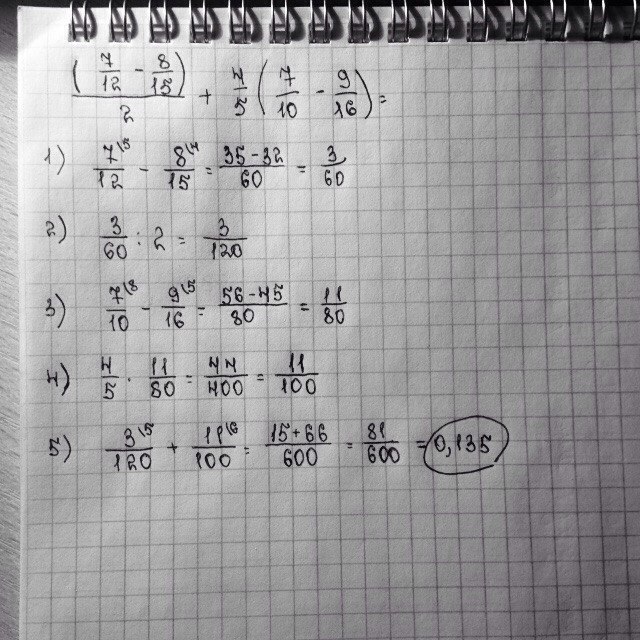 (7/12 - 8/15)/2 + 4/5 (7/10 - 9/16) =
1) 7\5/12 - 8\4/15 = 35-32/60 = 3/60
2) 3/60 : 2 = 3/120
3) 7\8/10 - 9\5/16 = 56-45/80 = 11/80
4) 4/5 · 11/80 = 44/400 = 11/100
5) 3\5/120 + 11\6/100 = 15+66/600 = 81/600 = 0,135